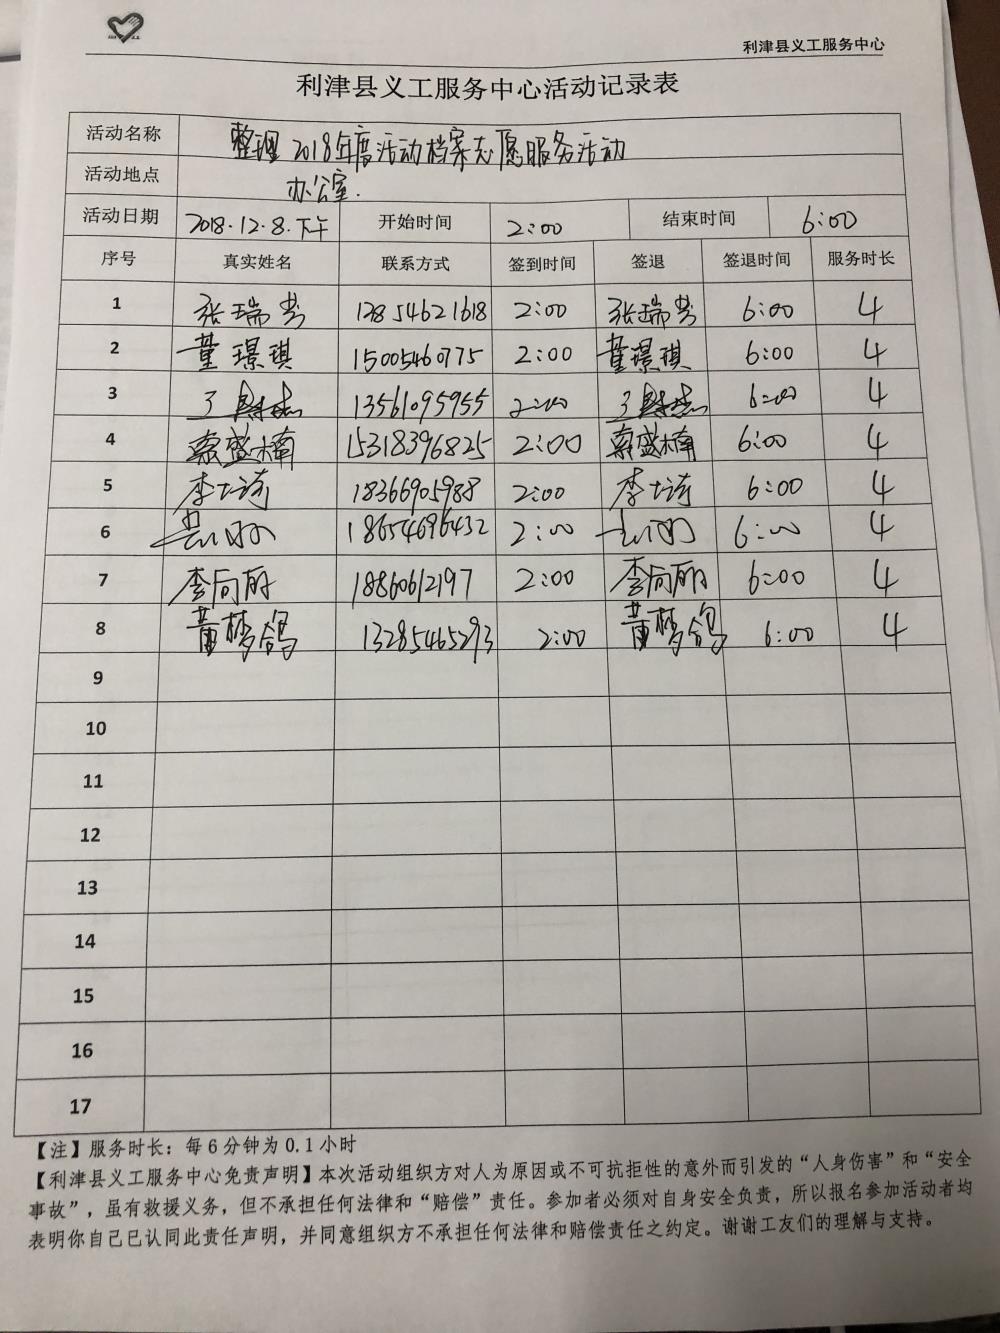 利津县义工服务中心
利津县义工服务中心活动记录表
活动名称 整理2018年度活动档案志愿服务活动
活动地点 办公室.
活动日期 2018.12.8.下午 开始时间 2:00 结束时间 6:00
序号 真实姓名 联系方式 签到时间 签退 签退时间 服务时长
1 张瑞芳 13854621618 2:00 张瑞芳 6:00 4
2 董璟琪 15005460775 2:00 董璟琪 6:00 4
3 13561095955 2:00 6:00 4
4 索盛楠 15318396825 2:00 索盛楠 6:00 4
5 李士涛 18366905988 2:00 李士涛 6:00 4
6 18654696432 2:00 6:00 4
7 李向丽 18860612197 2:00 李向丽 6:00 4
8 董梦鸽 13285465293 2:00 董梦鸽 6:00 4
9
10
11
12
13
14
15
16
17
【注】服务时长：每6分钟为0.1小时
【利津县义工服务中心免责声明】本次活动组织方对人为原因或不可抗拒性的意外而引发的“人身伤害”和“安全
事故”，虽有救援义务，但不承担任何法律和“赔偿”责任。参加者必须对自身安全负责，所以报名参加活动者均
表明你自己已认同此责任声明，并同意组织方不承担任何法律和赔偿责任之约定。谢谢工友们的理解与支持。